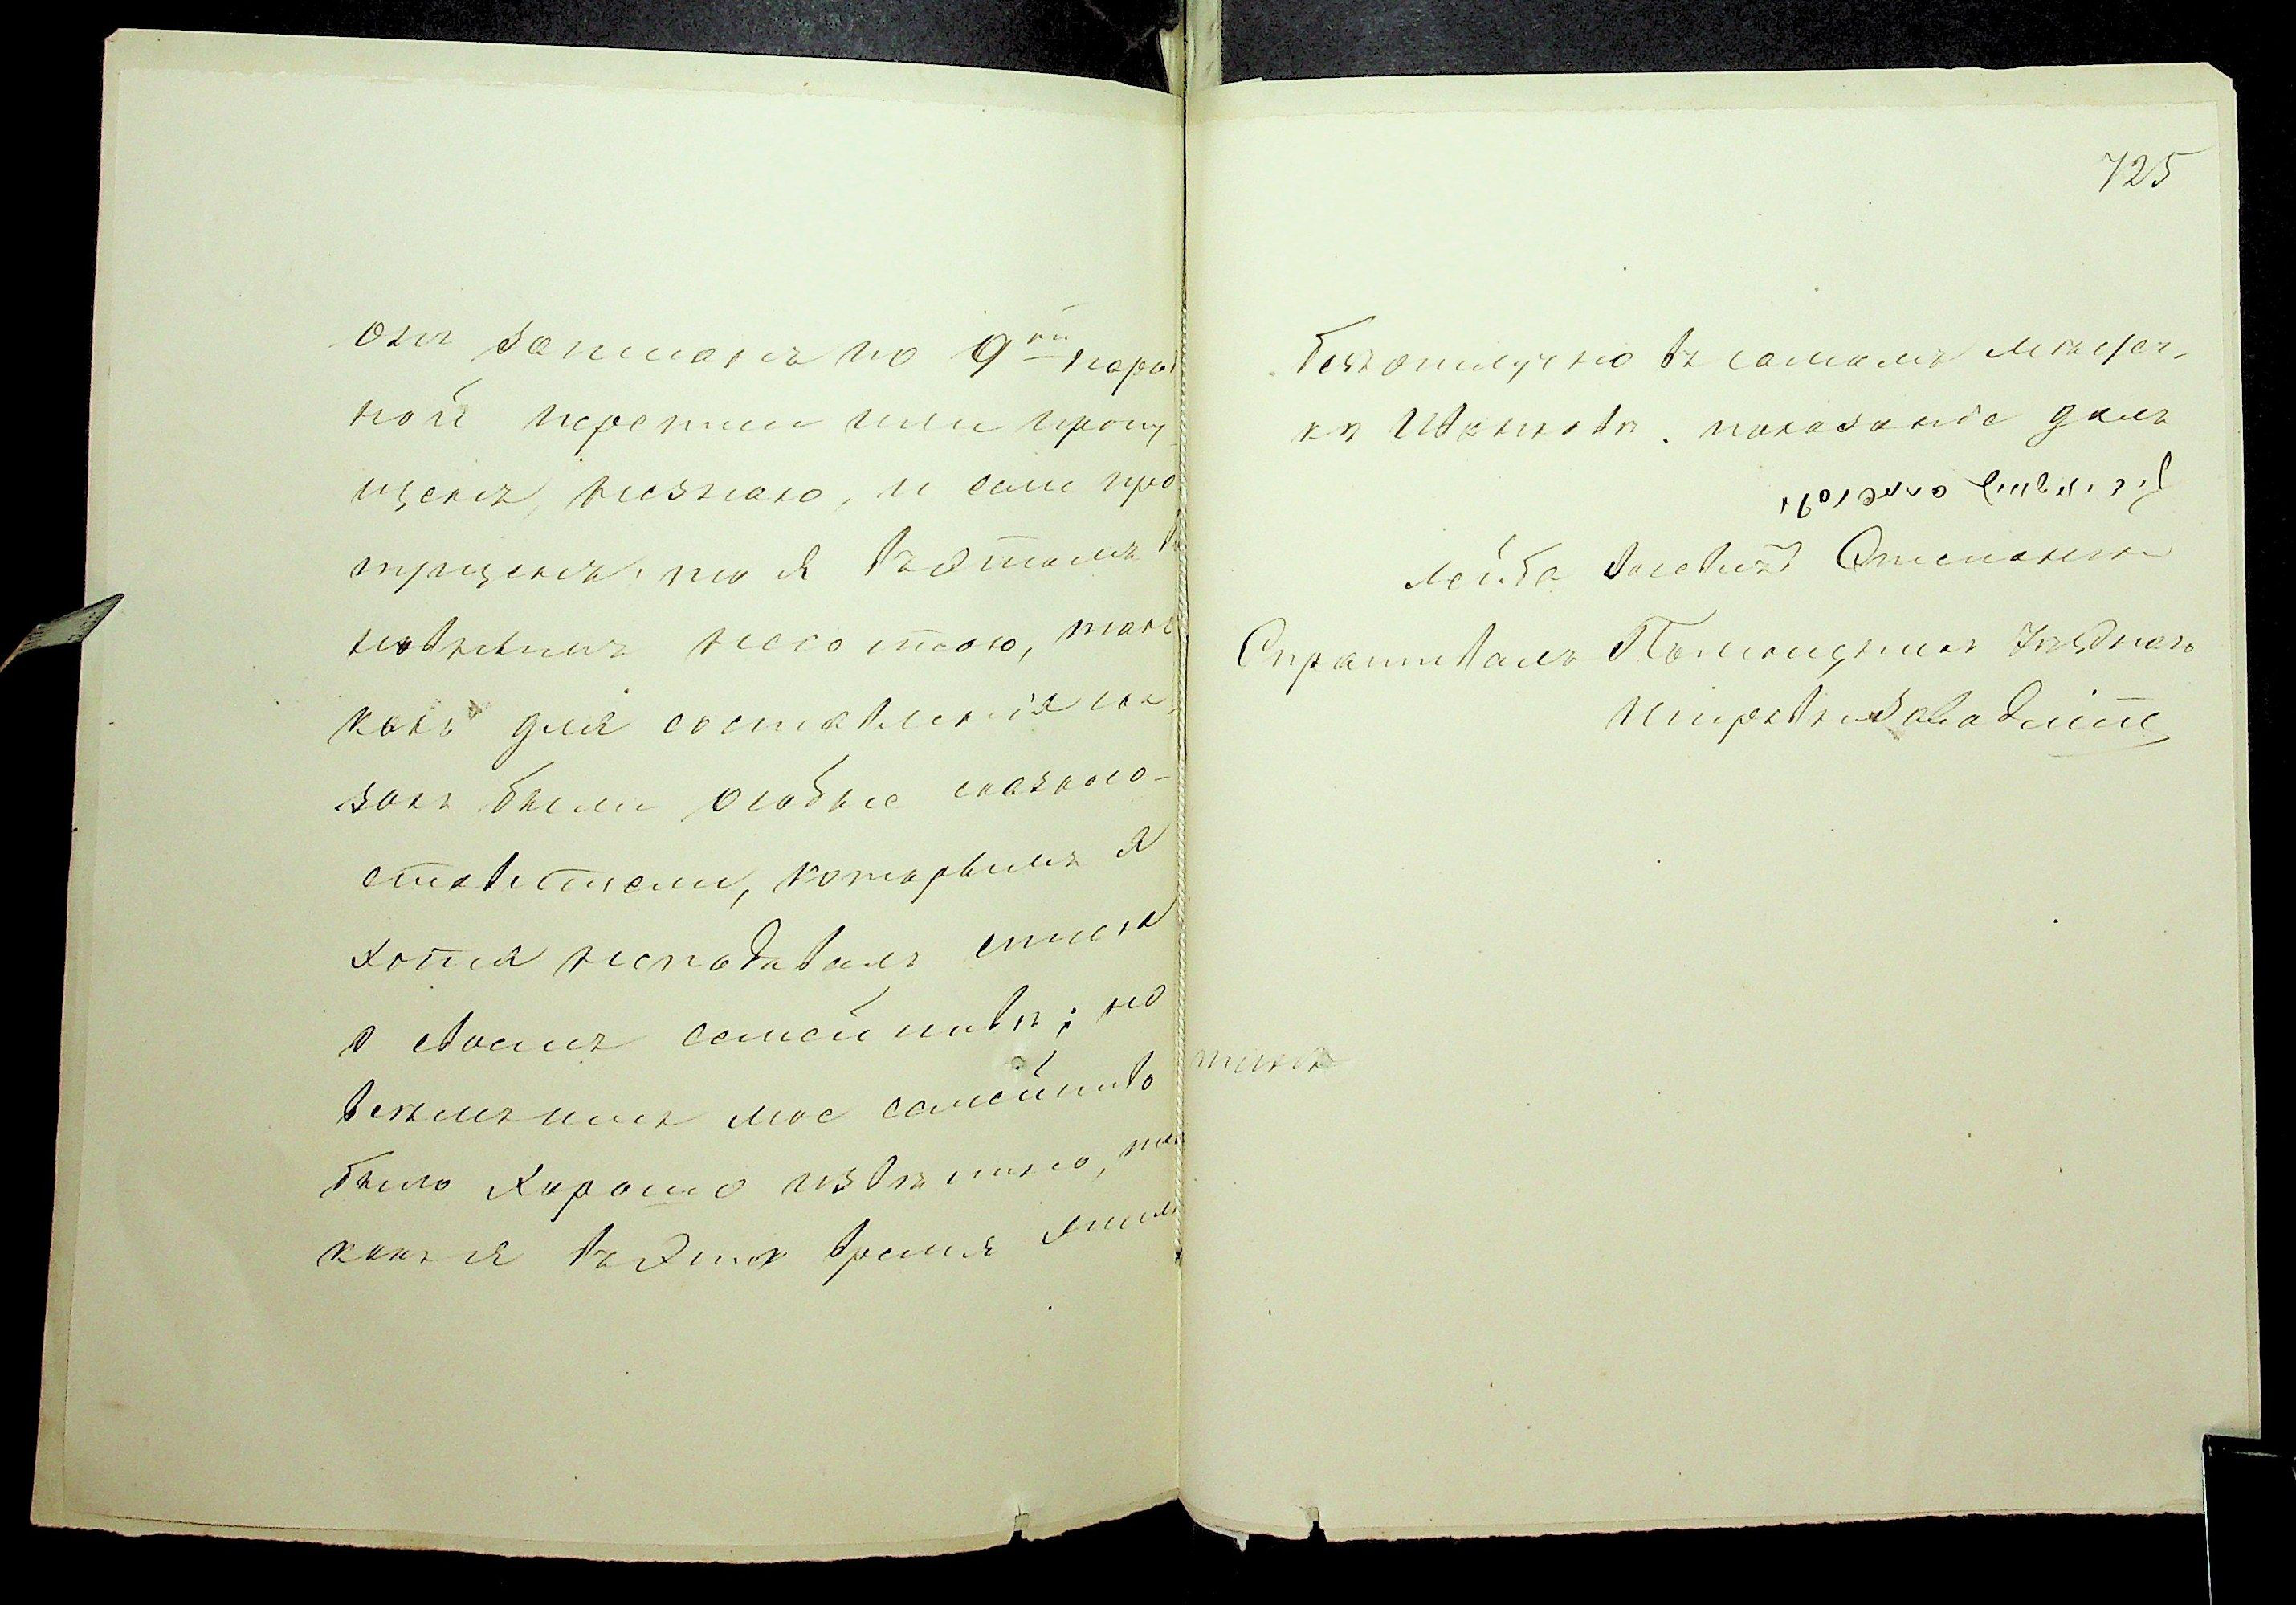 онъ записанъ по 9ой народ
ной переписи или пропу
щенъ, незнаю, и если про
пущенъ, то я въэтомъ
невиненъ несостою, такъ
какъ для составленія ска
зокъ были особые сказкосо-
ставители, которымъ я
хотя неподавалъ списка
о своемъ семействѣ; но
всѣмъ имъ мое семейство
было хорошо извѣстно, та
какъ я въэто время жилъ
725
безотлучно въ самомъ мѣстеч-
кѣ Ивенкѣ. показаніе далъ
Лейба Опенгеймъ
Спрашивалъ Помощникъ Уѣзднаго